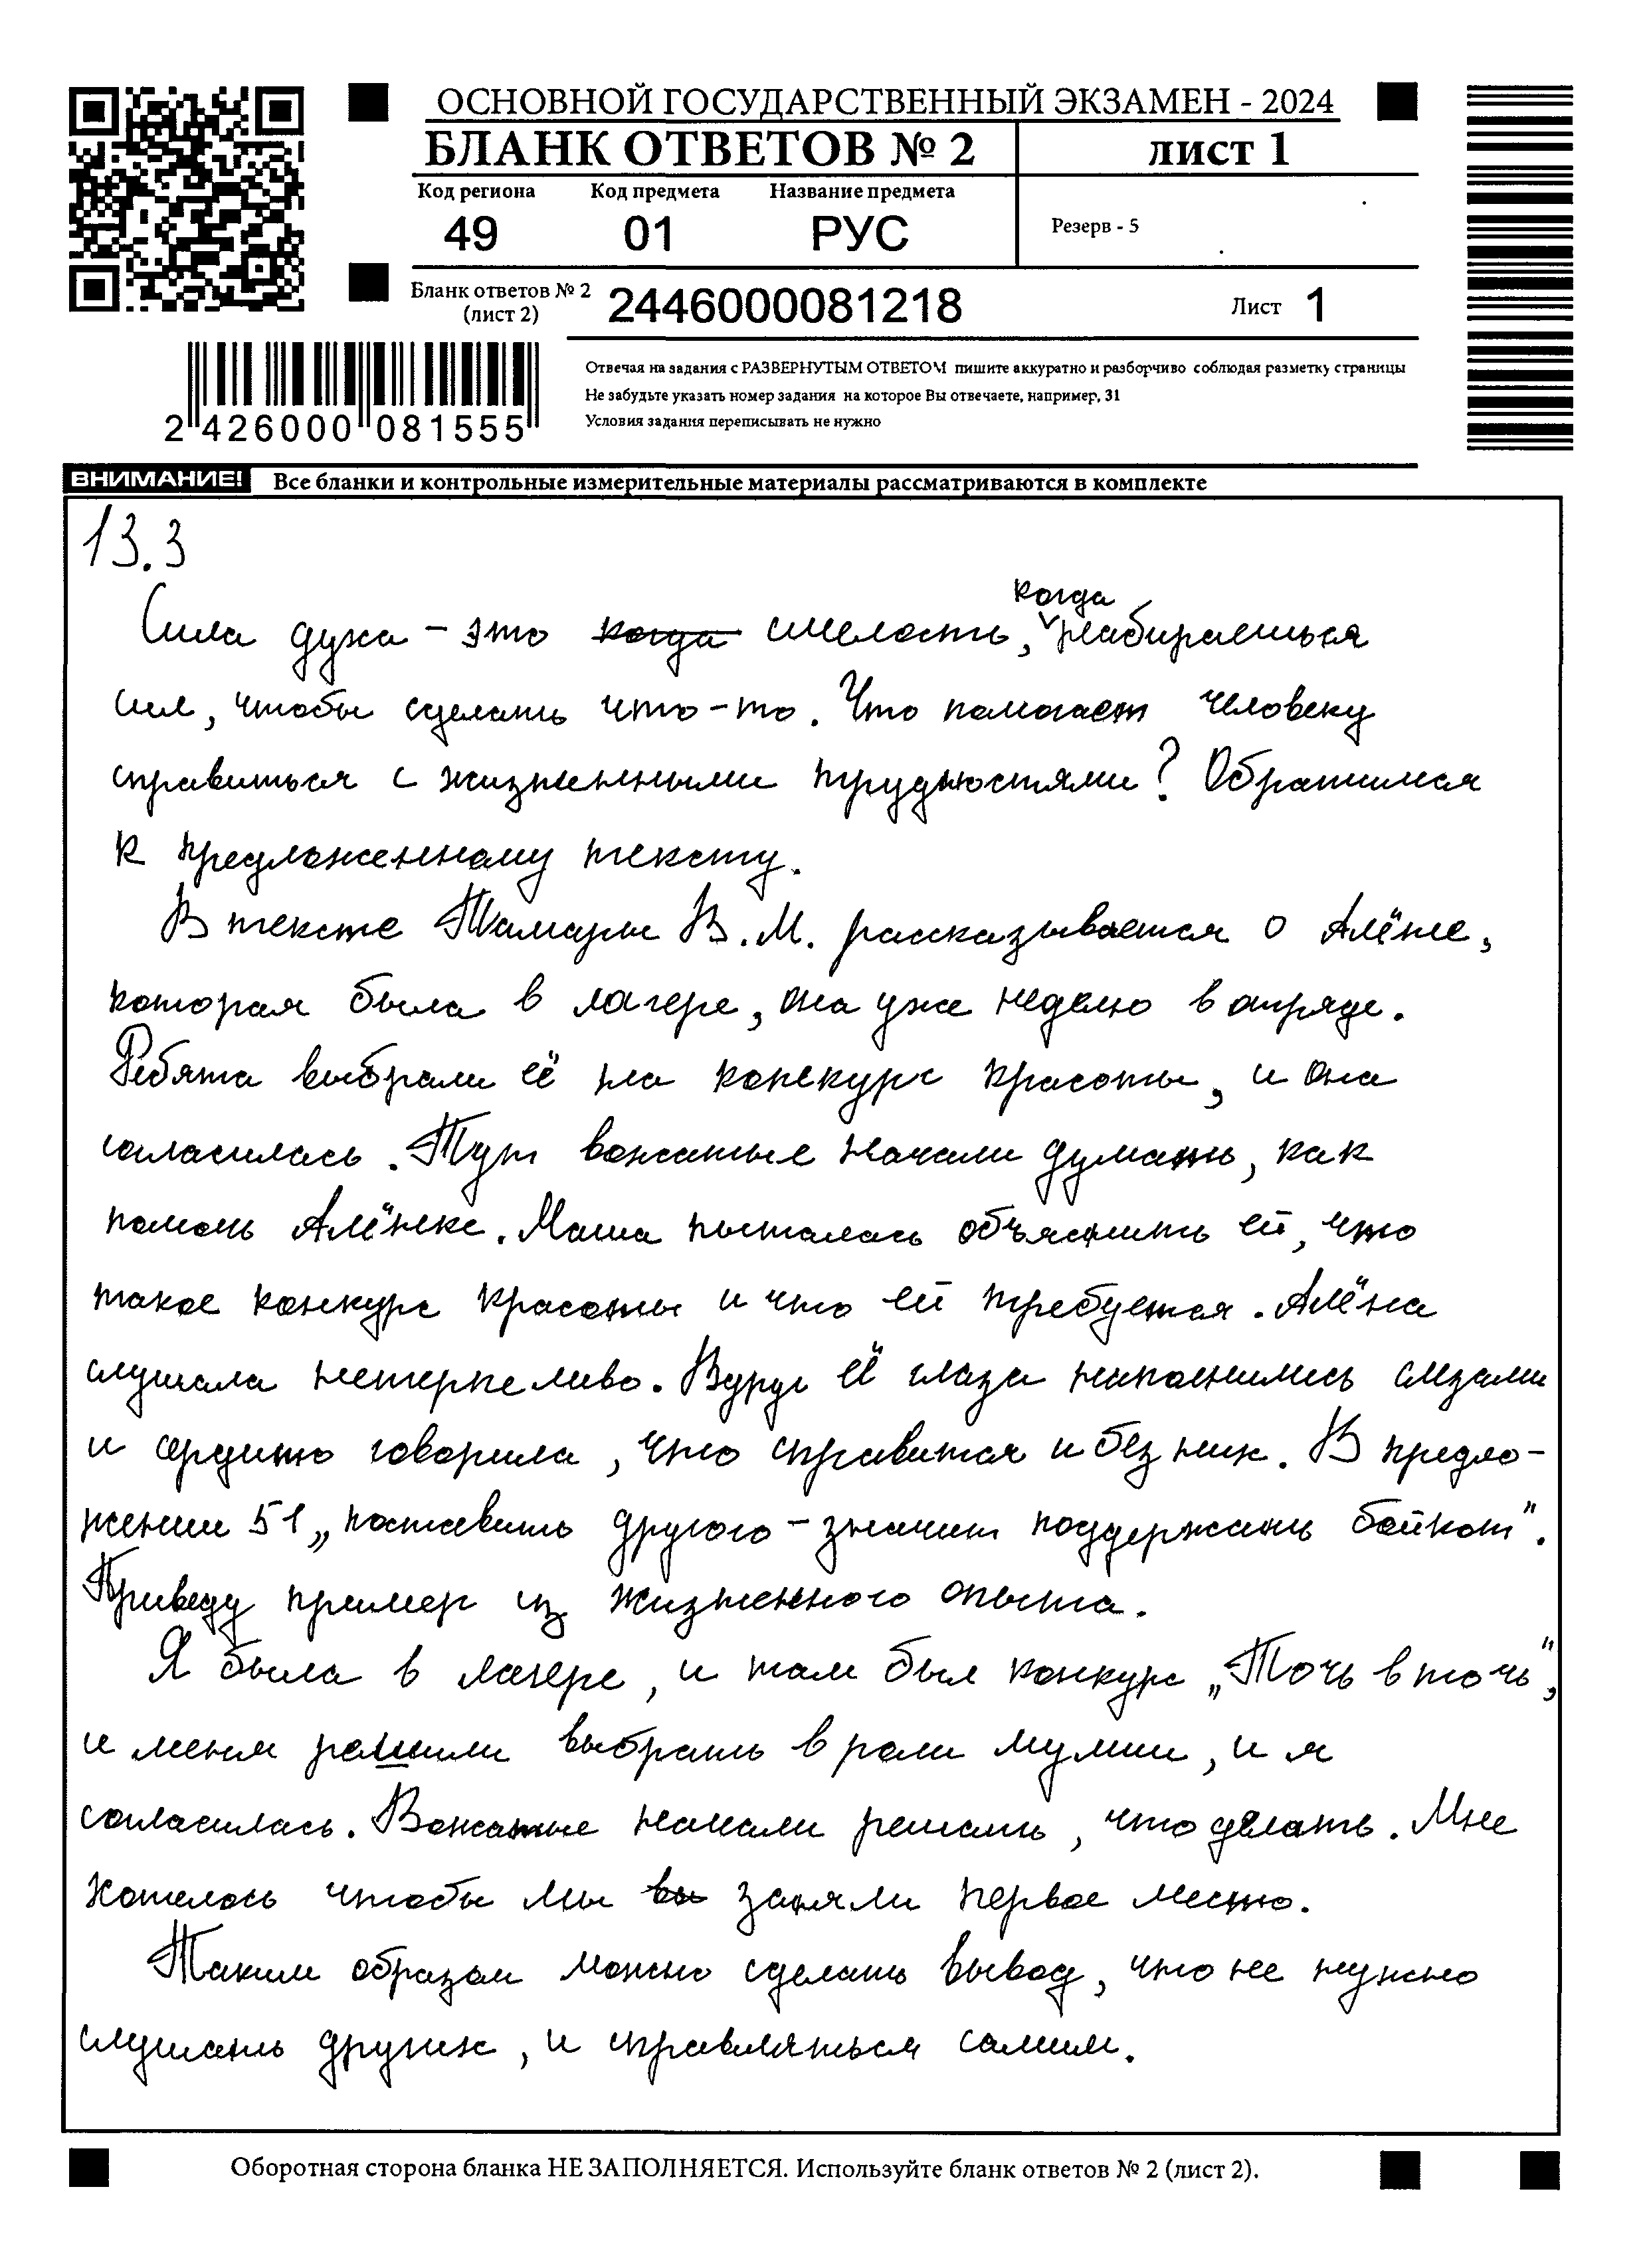 ОСНОВНОЙ ГОСУДАРСТВЕННЫЙ ЭКЗАМЕН - 2024
БЛАНК ОТВЕТОВ № 2
ЛИСТ 1
Код региона Код предмета Название предмета
49 01 РУС
Резерв - 5
Бланк ответов № 2
(лист 2)
2446000081218
Лист 1
2 426000 081555
Отвечая на задания с РАЗВЕРНУТЫМ ОТВЕТОМ пишите аккуратно и разборчиво соблюдая разметку страницы
Не забудьте указать номер задания на которое Вы отвечаете, например, 31
Условия задания переписывать не нужно
ВНИМАНИЕ! Все бланки и контрольные измерительные материалы рассматриваются в комплекте
13.3
когда
Сила духа – это когда смелость, набираешься
сил, чтобы сделать что-то. Что помогает человеку
справиться с жизненными трудностями? Обратимся
к предложенному тексту.
В тексте Тамары В.М. рассказывается о Алёне,
которая была в лагере, она уже неделю в отряде.
Ребята выбрали её на конкурс красоты, и она
согласилась. Тут вожатые начали думать, как
помочь Алёнке. Маша пыталась объяснить ей, что
такое конкурс красоты и что ей требуется. Алёна
слушала нетерпеливо. Вдруг её глаза наполнились слезами
и сердито говорила, что справится и без них. В предло-
жении 51 „поставить другого – значит поддержать бойкот".
Приведу пример из жизненного опыта.
Я была в лагере, и там был конкурс „Точь в точь",
и меня решили выбрать в роли мумии, и я
согласилась. Вожатые начали решать, что делать. Мне
хотелось чтобы мы вы заняли первое место.
Таким образом можно сделать вывод, что не нужно
слушать других, и справляться самим.
Оборотная сторона бланка НЕ ЗАПОЛНЯЕТСЯ. Используйте бланк ответов № 2 (лист 2).